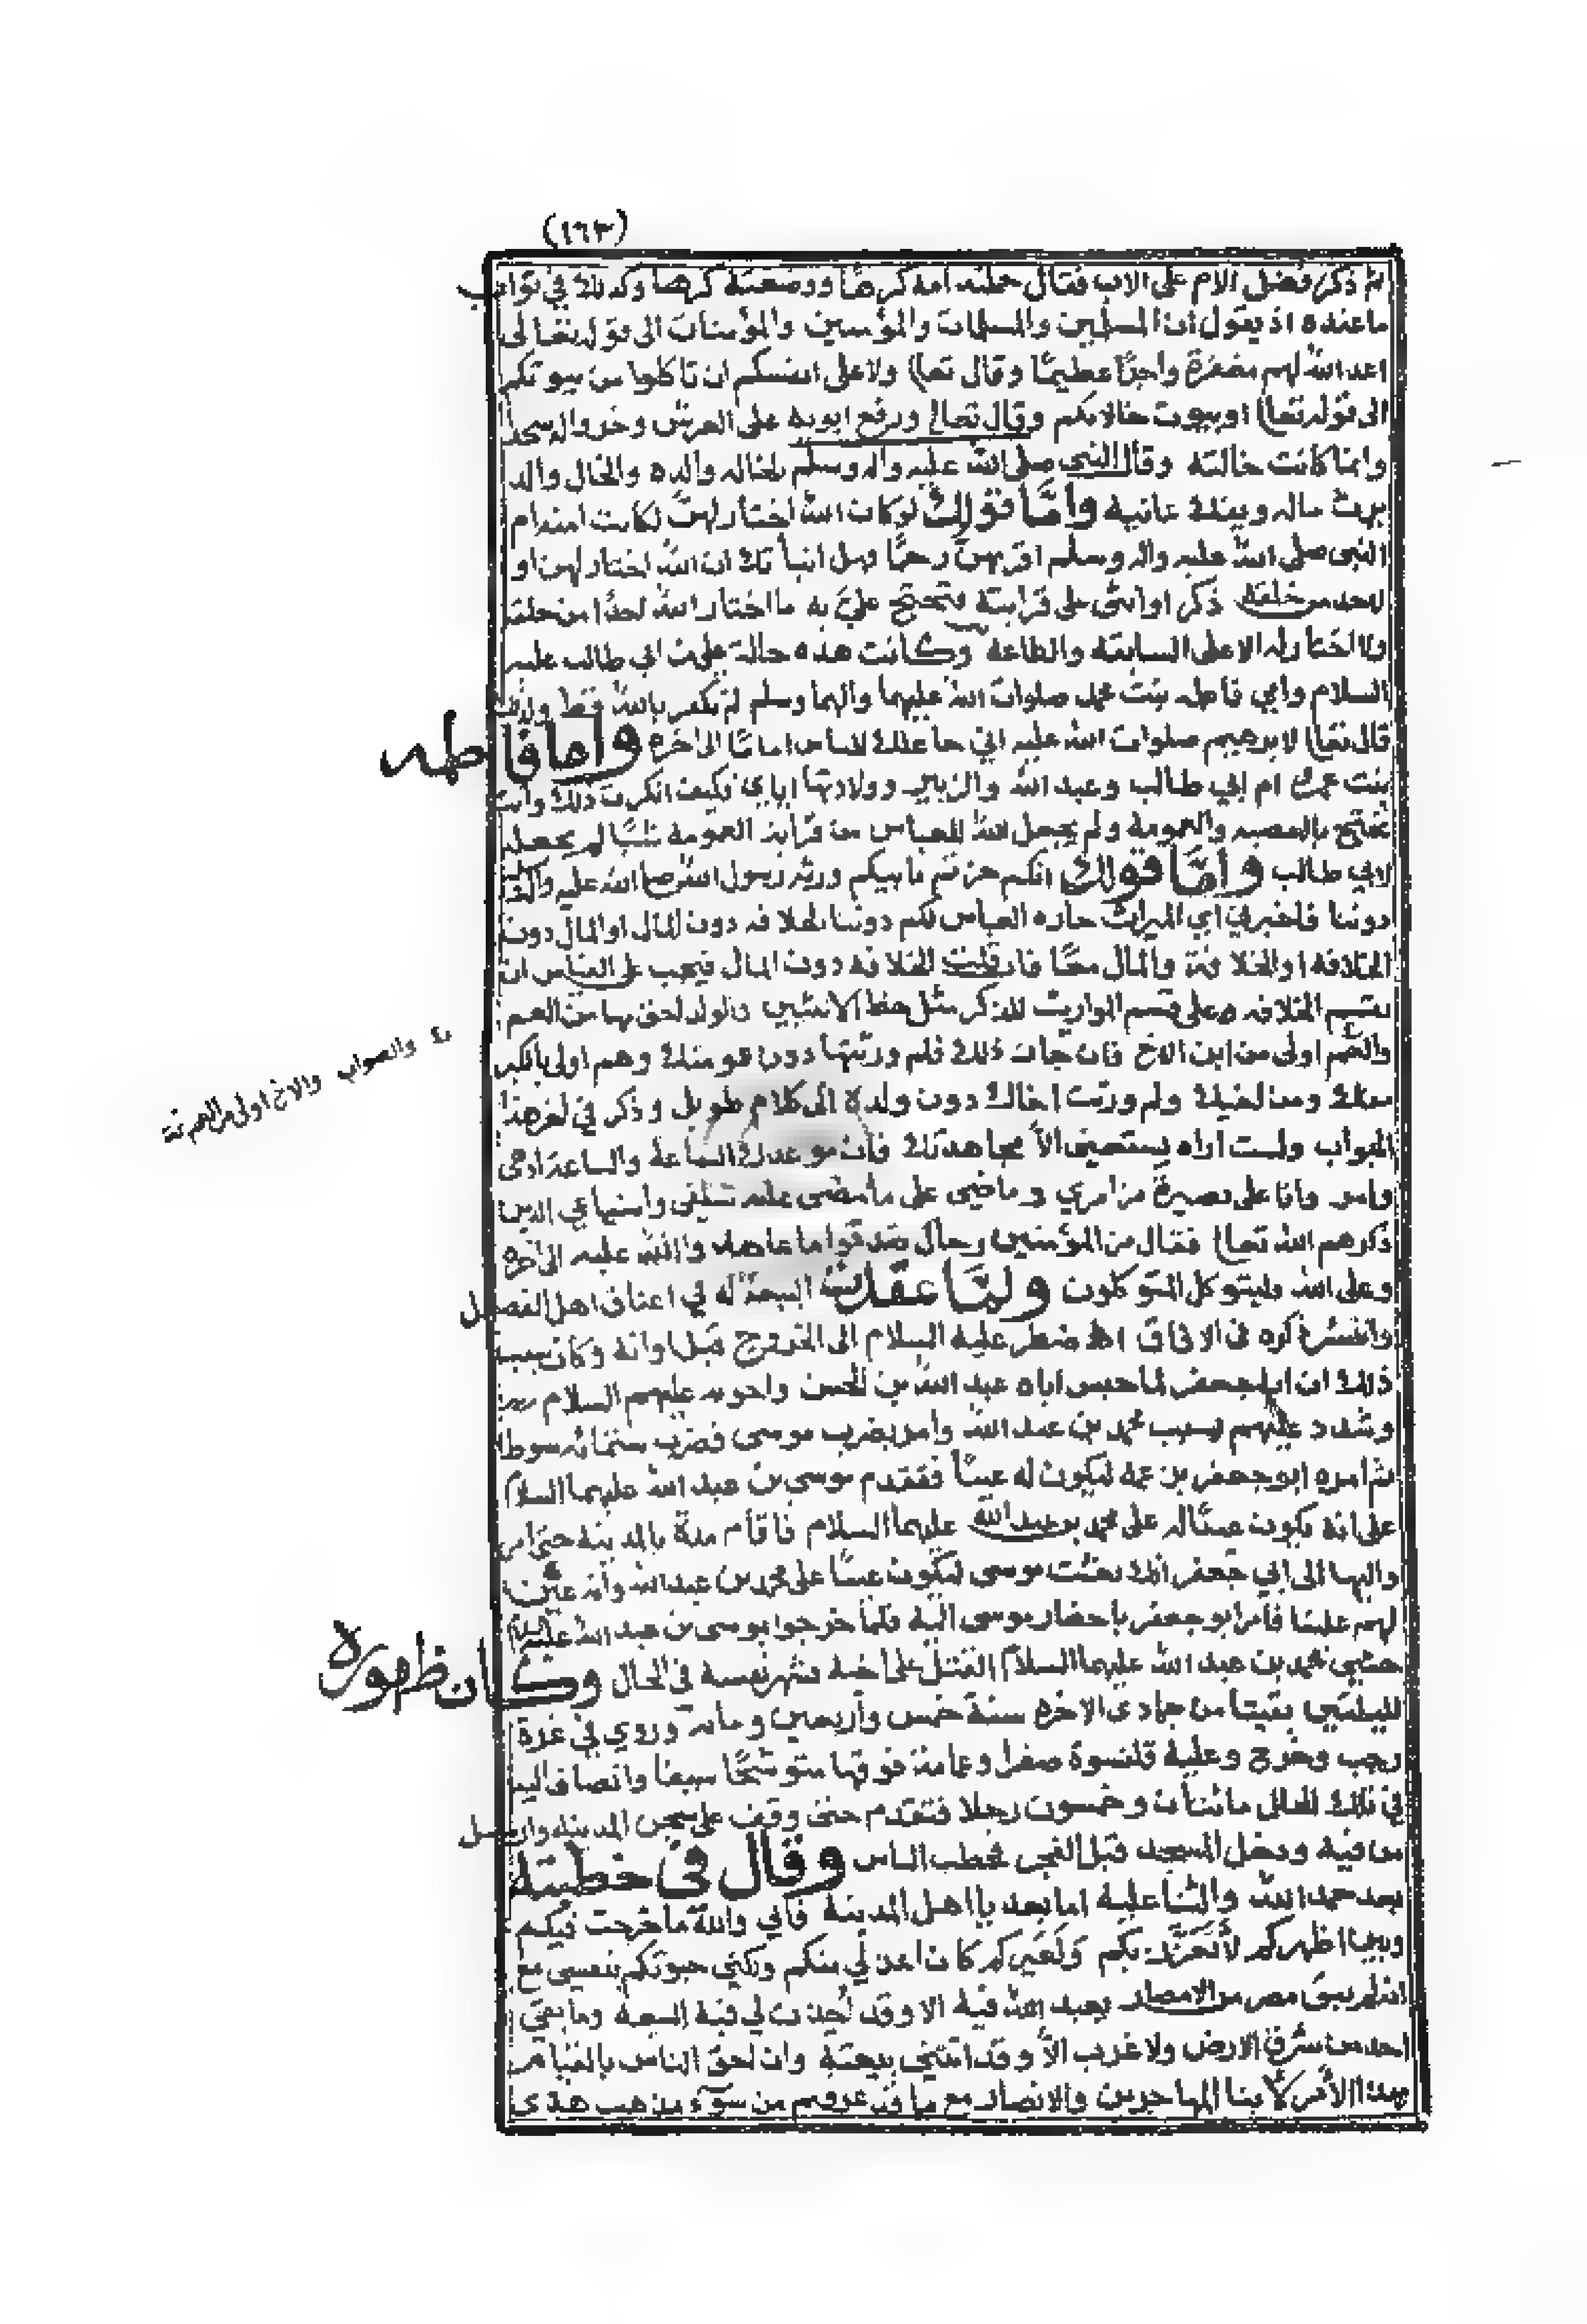 (١٦٣)
ثم ذكر فضل الام على الاب فقال حملته امه كرها ووضعته كرها وكذلك في ثواب
ما عنده اذ يقول ان المسلمين والمسلمات والمؤمنين والمؤمنات الى قوله تعالى
اعد الله لهم مغفرة واجرا عظيما وقال تعا) ولا على انفسكم ان تاكلوا من بيوتكم
الى قوله تعا) او بيوت خالاتكم وقال تعالى ورفع ابويه على العرش وخروا له سجدا
وانما كانت خالته وقال النبي صلى الله عليه واله وسلم الخاله والده والخال والد
يرث ماله ويفك عانيه واما قولك لو كان الله اختار لهن لكانت امنه ام
النبي صلى الله عليه واله وسلم اقربهن رحما وهل انبأتك ان الله اختار لهن او
لاحد من خلقه ذكر او انثى على قرابته تحتج علي به ما اختار الله احدا من خلقه
ولا اختار له الا على السابقه والطاعه وكانت هذه حالة علي بن ابي طالب عليه
السلام وابي فاطمه بنت محمد صلوات الله عليهما والهما وسلم لم يكفر بالله قط ولذلك
قال تعا) لابرهيم صلوات الله عليه اني جاعلك للناس اماما الى اخره واما فاطمه
بنت عمرو ام ابي طالب وعبد الله والزبير وولادتها اياي فكيف انكرت ذلك وانت
تحتج بالعصبه والعمومة ولم يجعل الله للعباس من قرابة العمومة شيئا لم يجعله
لابي طالب واما قولك انكم حزتم بابيكم ورثه رسول الله صلى الله عليه واله
دوننا فاخبرني اي الميراث حازه العباس لكم دوننا الخلافه دون المال او المال دون
الخلافه او الخلافة والمال معا فان قلت الخلافه دون المال فيجب على العباس ان
تقسم الخلافه على قسم المواريث للذكر مثل حظ الانثيين والولد احق بها من العم
والعم اولى من ابن الاخ فان جات ذلك فلم ورثتها دون قومك وهم اولى بالكبر
منك ومن اخيك ولم ورثت اخاك دون ولده الى كلام طويل وذكر في اخر هذا
الجواب ولست اراه يستعيني الا مجاهدتك فان موعدك الساعة والساعة ادهى
وامر وانا على بصيرة من امري وماضي على ما مضى عليه سلفي واشياعي الذين
ذكرهم الله تعا) فقال من المؤمنين رجال صدقوا ما عاهدوا الله عليه الى اخره
وعلى الله فليتوكل المتوكلون ولما عقدت البيعة له في اعناق اهل الفضل
وانتشر ذكره في الافاق اضطر عليه السلام الى الخروج قبل اوانه وكان سبب
ذلك ان ابا جعفر لما حبس اباه عبد الله بن الحسن واخوته عليهم السلام
وشدد عليهم بسبب محمد بن عبد الله وامر بضرب موسى فضرب ستمائه سوط
ثم امره ابو جعفر بن عمه ليكون له عينا فتقدم موسى بن عبد الله عليهما السلام
على انه يكون عينا له على محمد بن عبد الله عليهما السلام فاقام مدة بالمدينة حتى
واليها الى ابي جعفر انك بعثت موسى ليكون عينا على محمد بن عبد الله وانه عين
لهم علينا فامر ابو جعفر باحضار موسى اليه فلما خرجوا بموسى بن عبد الله عليهما
خشي محمد بن عبد الله عليهما السلام القتل على اخيه فشهر نفسه في الحال وكان ظهوره
لليلتين بقيتا من جمادى الاخره سنة خمس وأربعين ومايه وروي في غرة
رجب وخرج وعليه قلنسوة صفرا وعمامة فوقها متوشحا سيفا وانضاف اليه
في تلك الحال مائتان وخمسون رجلا فتقدم حتى وقف على سجن المدينه وارسل
من فيه ودخل المسجد قبل الفجر فخطب الناس وقال في خطبته
بعد حمد الله والثنا عليه اما بعد يا اهل المدينة فاني والله ما خرجت فيكم
وبين اظهركم لأتعزز بكم ولغيركم كان اعز لي منكم ولكني حبوتكم بنفسي مع
انه لم يبق مصر من الامصار يعبد الله فيه الا وقد اخذت لي فيه البيعة وما بقي
احد من شرق الارض ولا غرب الا وقد اتتني بيعته وان احق الناس بالقيام
بهذا الأمر لأبنا المهاجرين والانصار مع ما قد عرفتم من سوء مذهب هذي
والصواب والاخ اولى من العم تمت